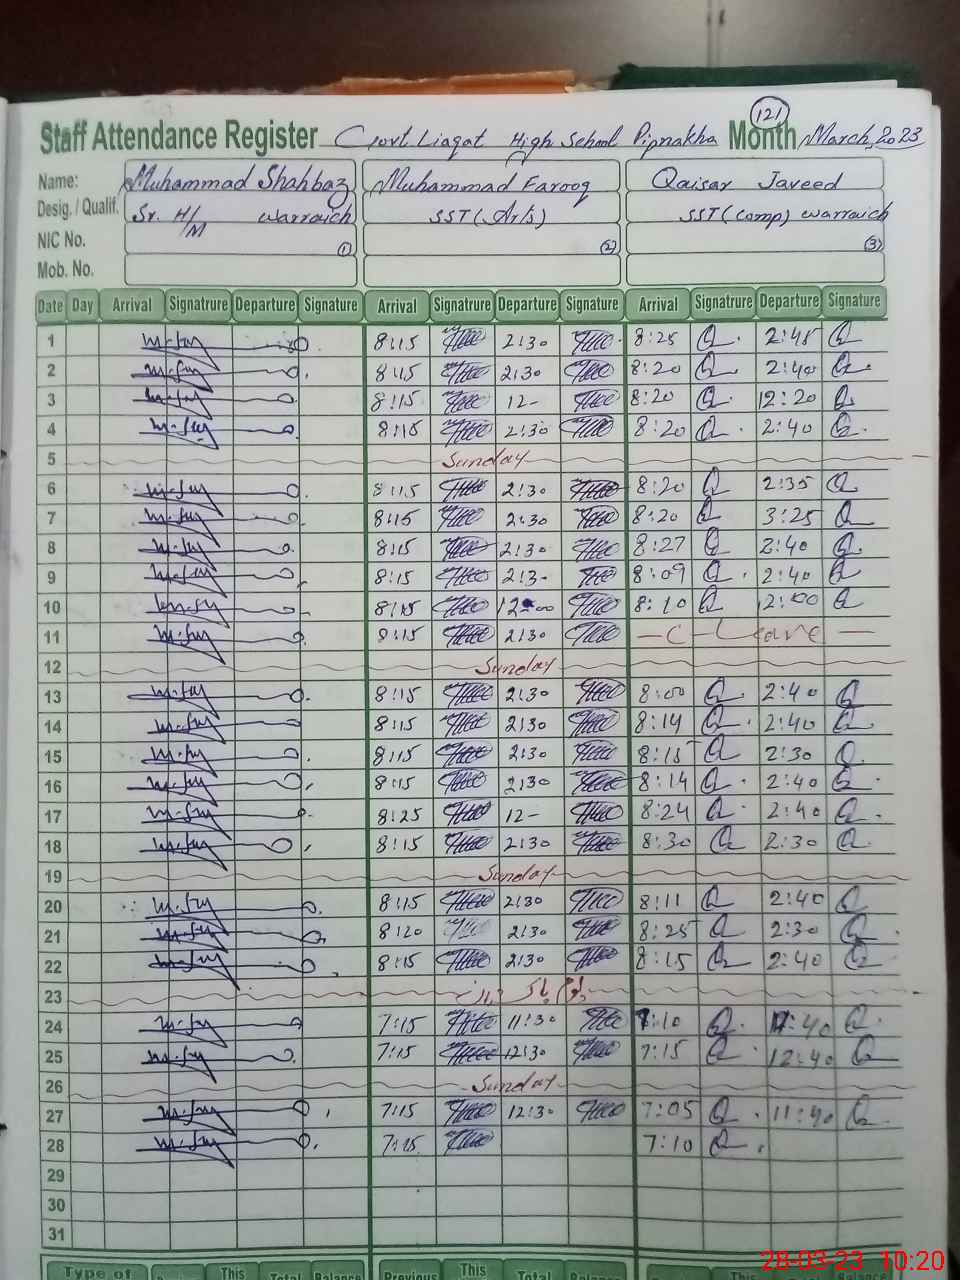 121
Staff Attendance Register Govt Liaqat High School Pipnakha Month March, 2023
Name: Muhammad Shahbaz Muhammad Farooq Qaisar Javeed
Desig. / Qualif. Sr. H/M warraich SST (Arts) SST (comp) warraich
NIC No. 1 2 3
Mob. No.
Date Day Arrival Signatrure Departure Signature Arrival Signatrure Departure Signature Arrival Signatrure Departure Signature
1 8:15 2:30 8:25 2:45
2 8:15 2:30 8:20 2:40
3 8:15 12- 8:20 12:20
4 8:15 2:30 8:20 2:40
5 Sunday
6 8:15 2:30 8:20 2:35
7 8:15 2:30 8:20 3:25
8 8:15 2:30 8:27 2:40
9 8:15 2:3- 8:09 2:40
10 8:15 12-00 8:10 12:00
11 8:15 2:30 - C - Leave -
12 Sunday
13 8:15 2:30 8:00 2:40
14 8:15 2:30 8:14 2:40
15 8:15 2:30 8:15 2:30
16 8:15 2:30 8:14 2:40
17 8:25 12- 8:24 2:40
18 8:15 2:30 8:30 2:30
19 Sunday
20 8:15 2:30 8:11 2:40
21 8:20 2:30 8:25 2:30
22 8:15 2:30 8:15 2:40
23
24 7:15 11:30 7:10 11:40
25 7:15 12:30 7:15 12:40
26 Sunday
27 7:15 12:30 7:05 11:40
28 7:15 7:10
29
30
31
Type of This Total Balance Previous This Total Balance This
28-03-23 10:20